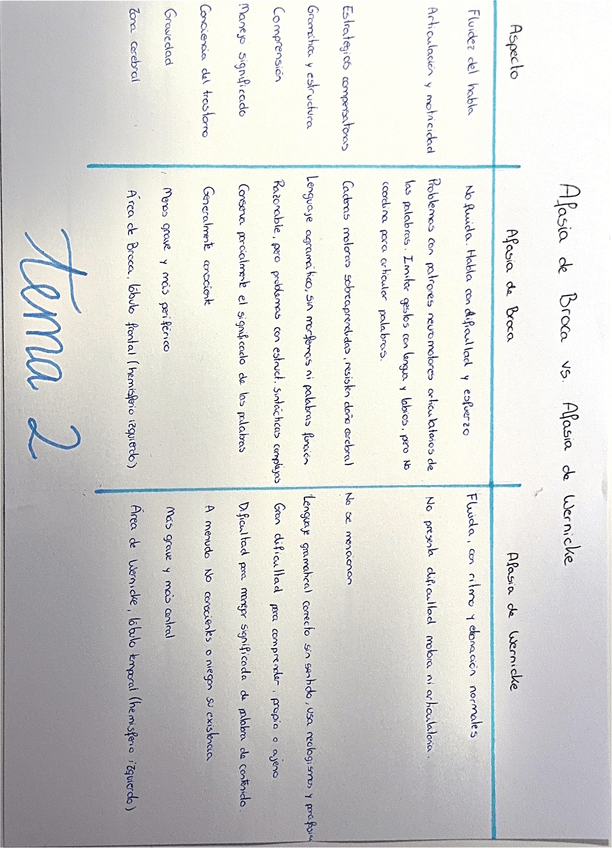 Afasia de Broca vs. Afasia de Wernicke
Aspecto Afasia de Broca Afasia de Wernicke
Fluidez del habla No fluida. Habla con dificultad y esfuerzo Fluida, con ritmo y entonación normales
Articulación y motricidad Problemas con patrones neuromotores articulatorios de No presenta dificultad motora ni articulatoria.
las palabras. Imitar gestos con lengua y labios, pero no
coordina para articular palabras.
Estrategias compensatorias Cadenas motoras sobreaprendidas, resisten daño cerebral No se mencionan
Gramática y estructura Lenguaje agramático, sin morfemas ni palabras función Lenguaje gramatical correcto sin sentido, usa neologismos y parafasias
Comprensión Razonable, pero problemas con estruct. sintácticas complejas Gran dificultad para comprender, propio o ajeno
Manejo significado Conserva parcialmente el significado de las palabras Dificultad para manejar significado de palabra de contenido.
Conciencia del trastorno Generalmente consciente A menudo no conscientes o niegan su existencia
Gravedad Menos grave y más periférico Más grave y más central
Zona cerebral Área de Broca, lóbulo frontal (hemisferio izquierdo) Área de Wernicke, lóbulo temporal (hemisferio izquierdo)
tema 2